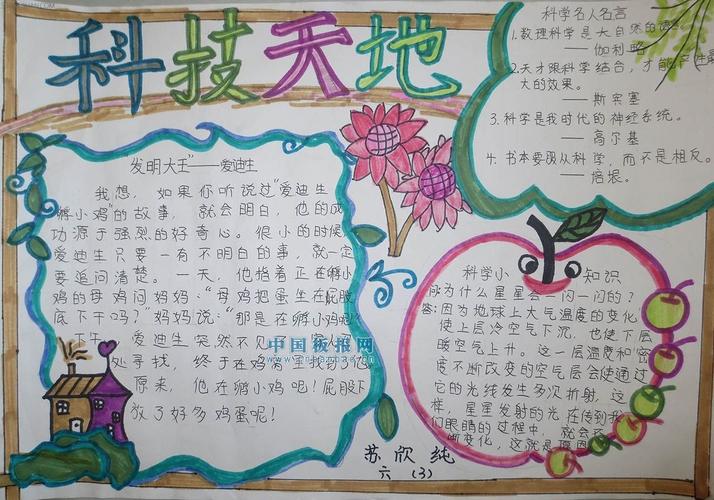 科技天地
发明大王"——爱迪生
我想，如果你听说过"爱迪生
孵小鸡"的故事，就会明白，他的成
功源于强烈的好奇心。很小的时候，
爱迪生只要一有不明白的事，就一定
要追问清楚。一天，他指着正在孵小
鸡的母鸡问妈妈："母鸡把蛋坐在屁股
底下干吗？"妈妈说："那是在孵小鸡呢！"
下午，爱迪生突然不见
处寻找，终于在鸡
原来，他在孵小鸡吧！屁股下
放了好多鸡蛋呢！
中国板报网
科学名人名言
1.数理科学是大自然的语
——伽利略
2.天才跟科学结合，才能产生最
大的效果。
——斯宾塞
3.科学是我时代的神经系统。
——高尔基
4.书本要跟从科学，而不是相反。
——培根。
科学小知识
问为什么星星会一闪一闪的？
答：因为地球上大气温度的变化
使上层冷空气下沉，也使下层
暖空气上升。这一层温度和密
度不断改变的空气层会使通过
它的光线发生多次折射，这
样，星星发射的光在传到我
们眼睛的过程中，就会不
断变化，这就是原因
苏欣纯
六（3）